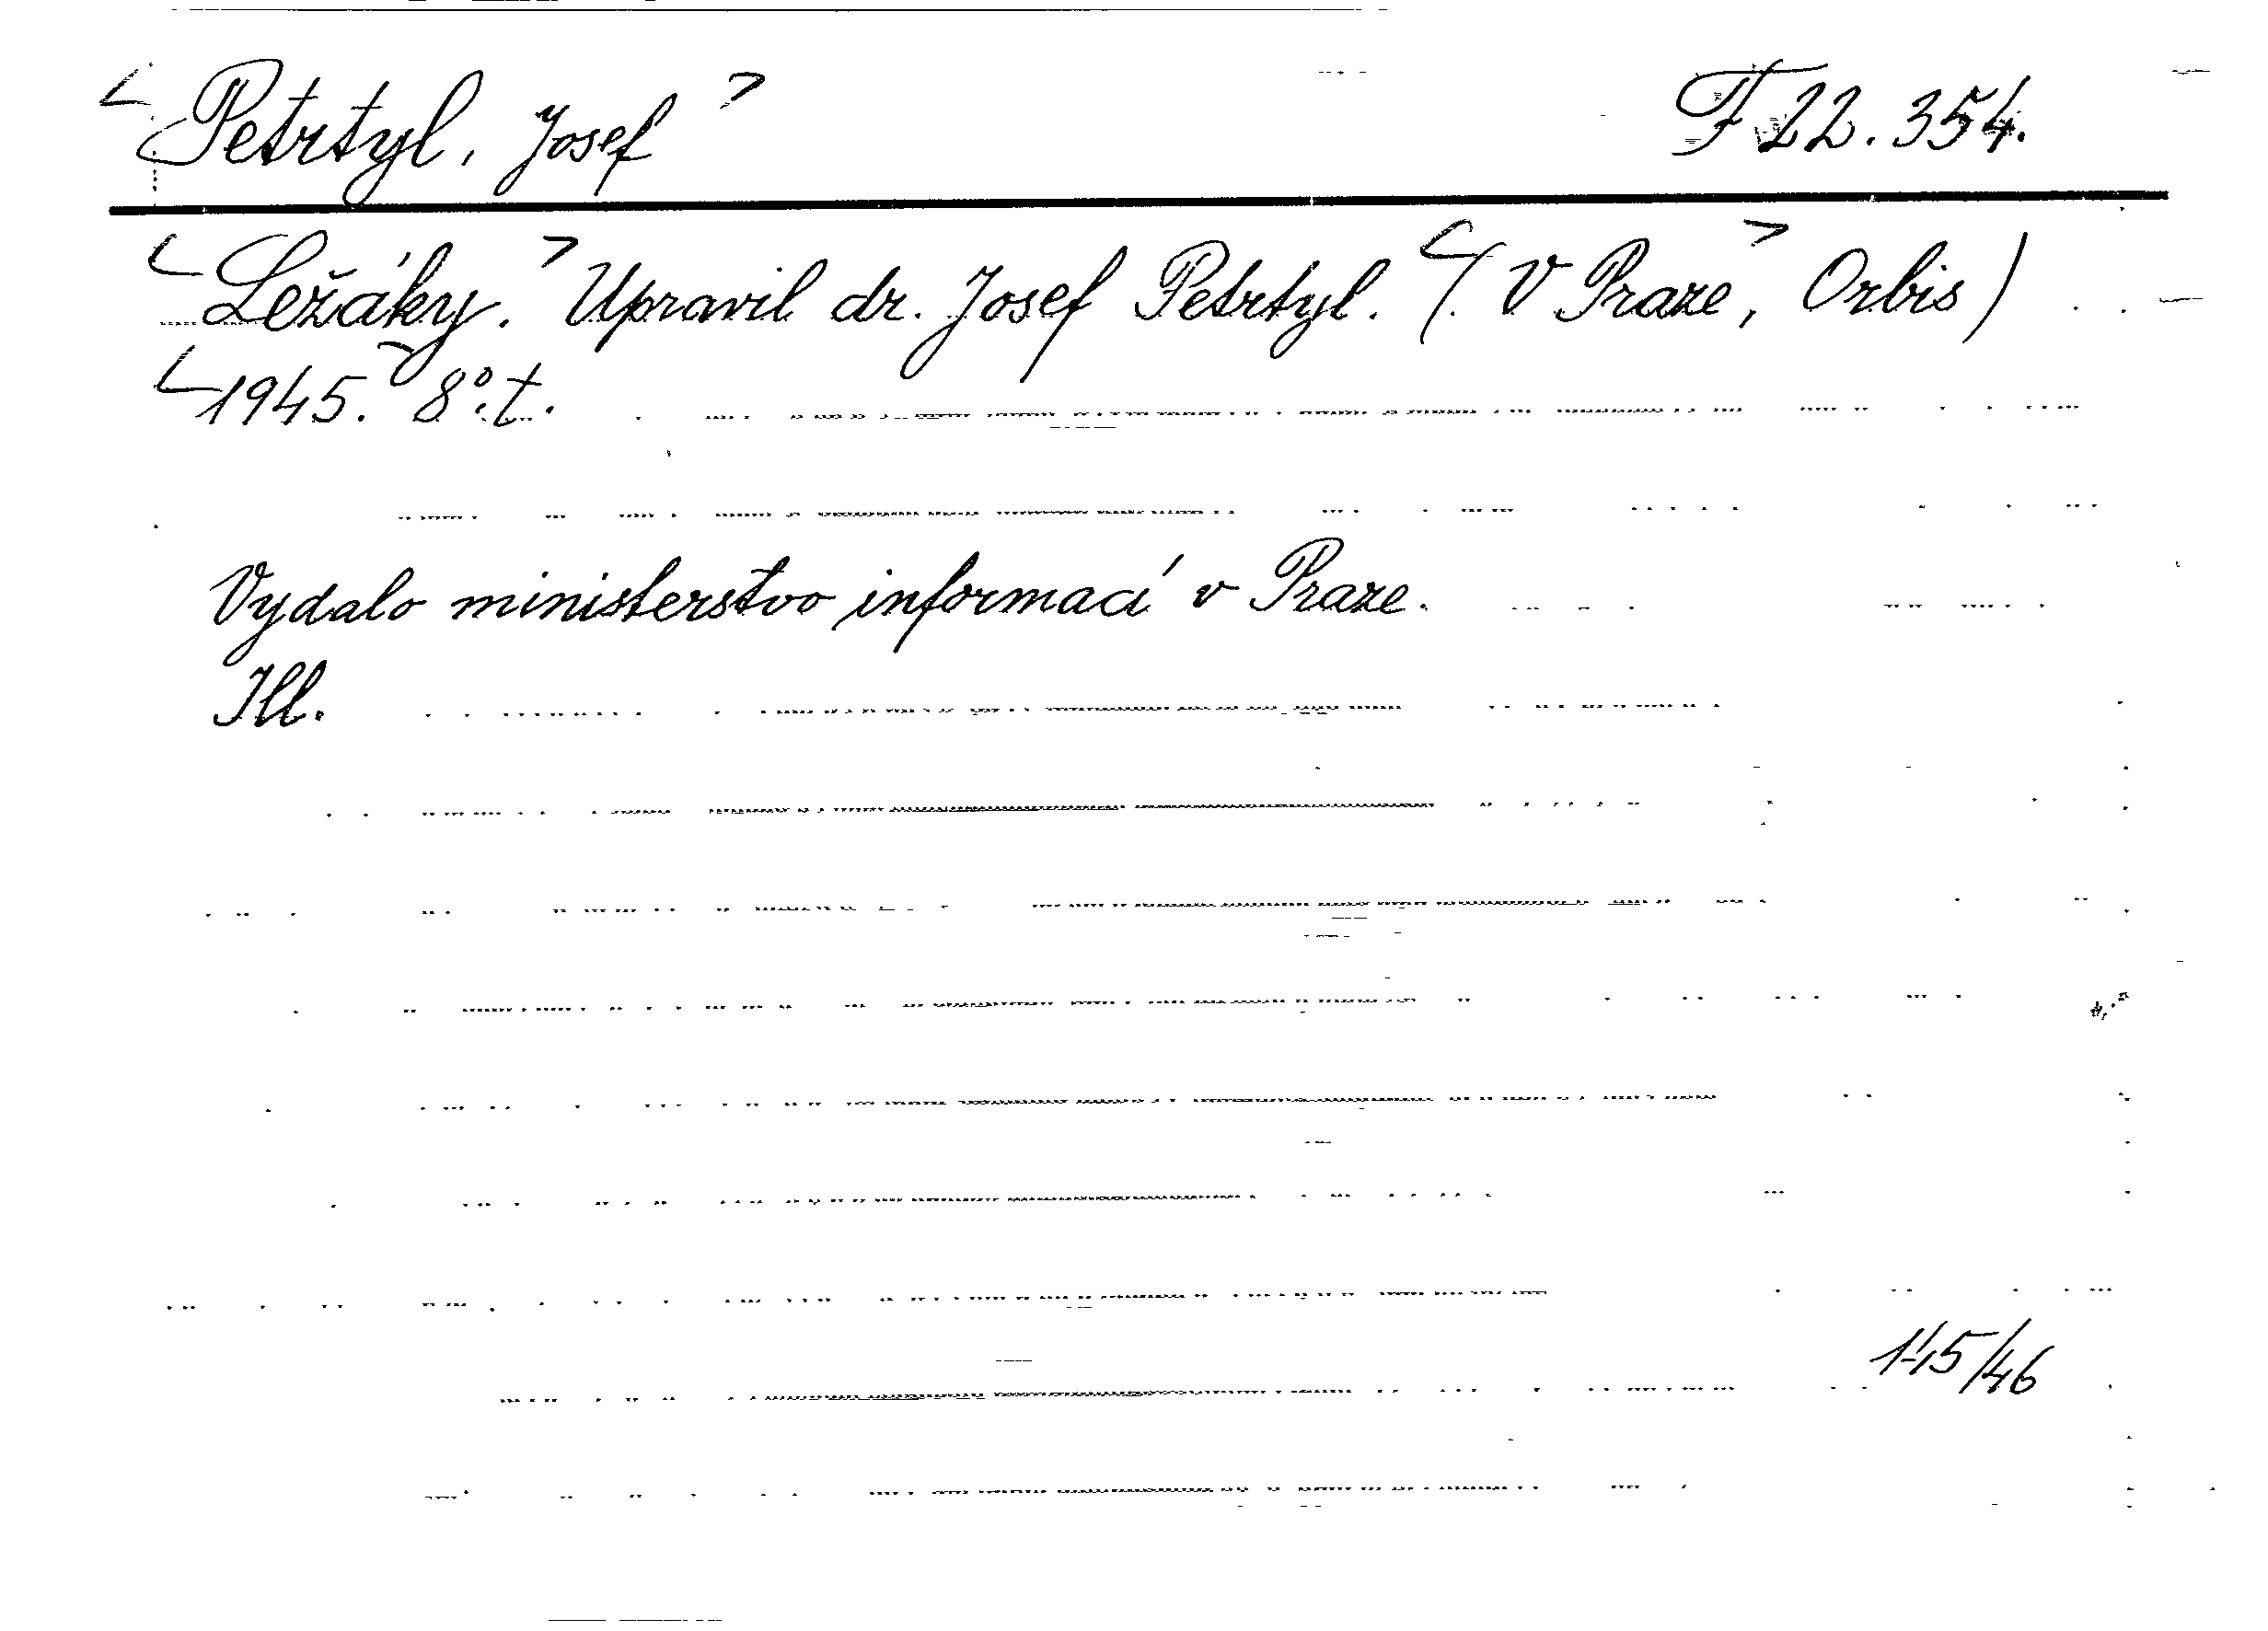 Petrtyl, Josef
F 22.354.
Ležáky. Upravil dr. Josef Petrtyl. (V Praze, Orbis)
1945. 8°. t.
Vydalo ministerstvo informací v Praze.
Ill.